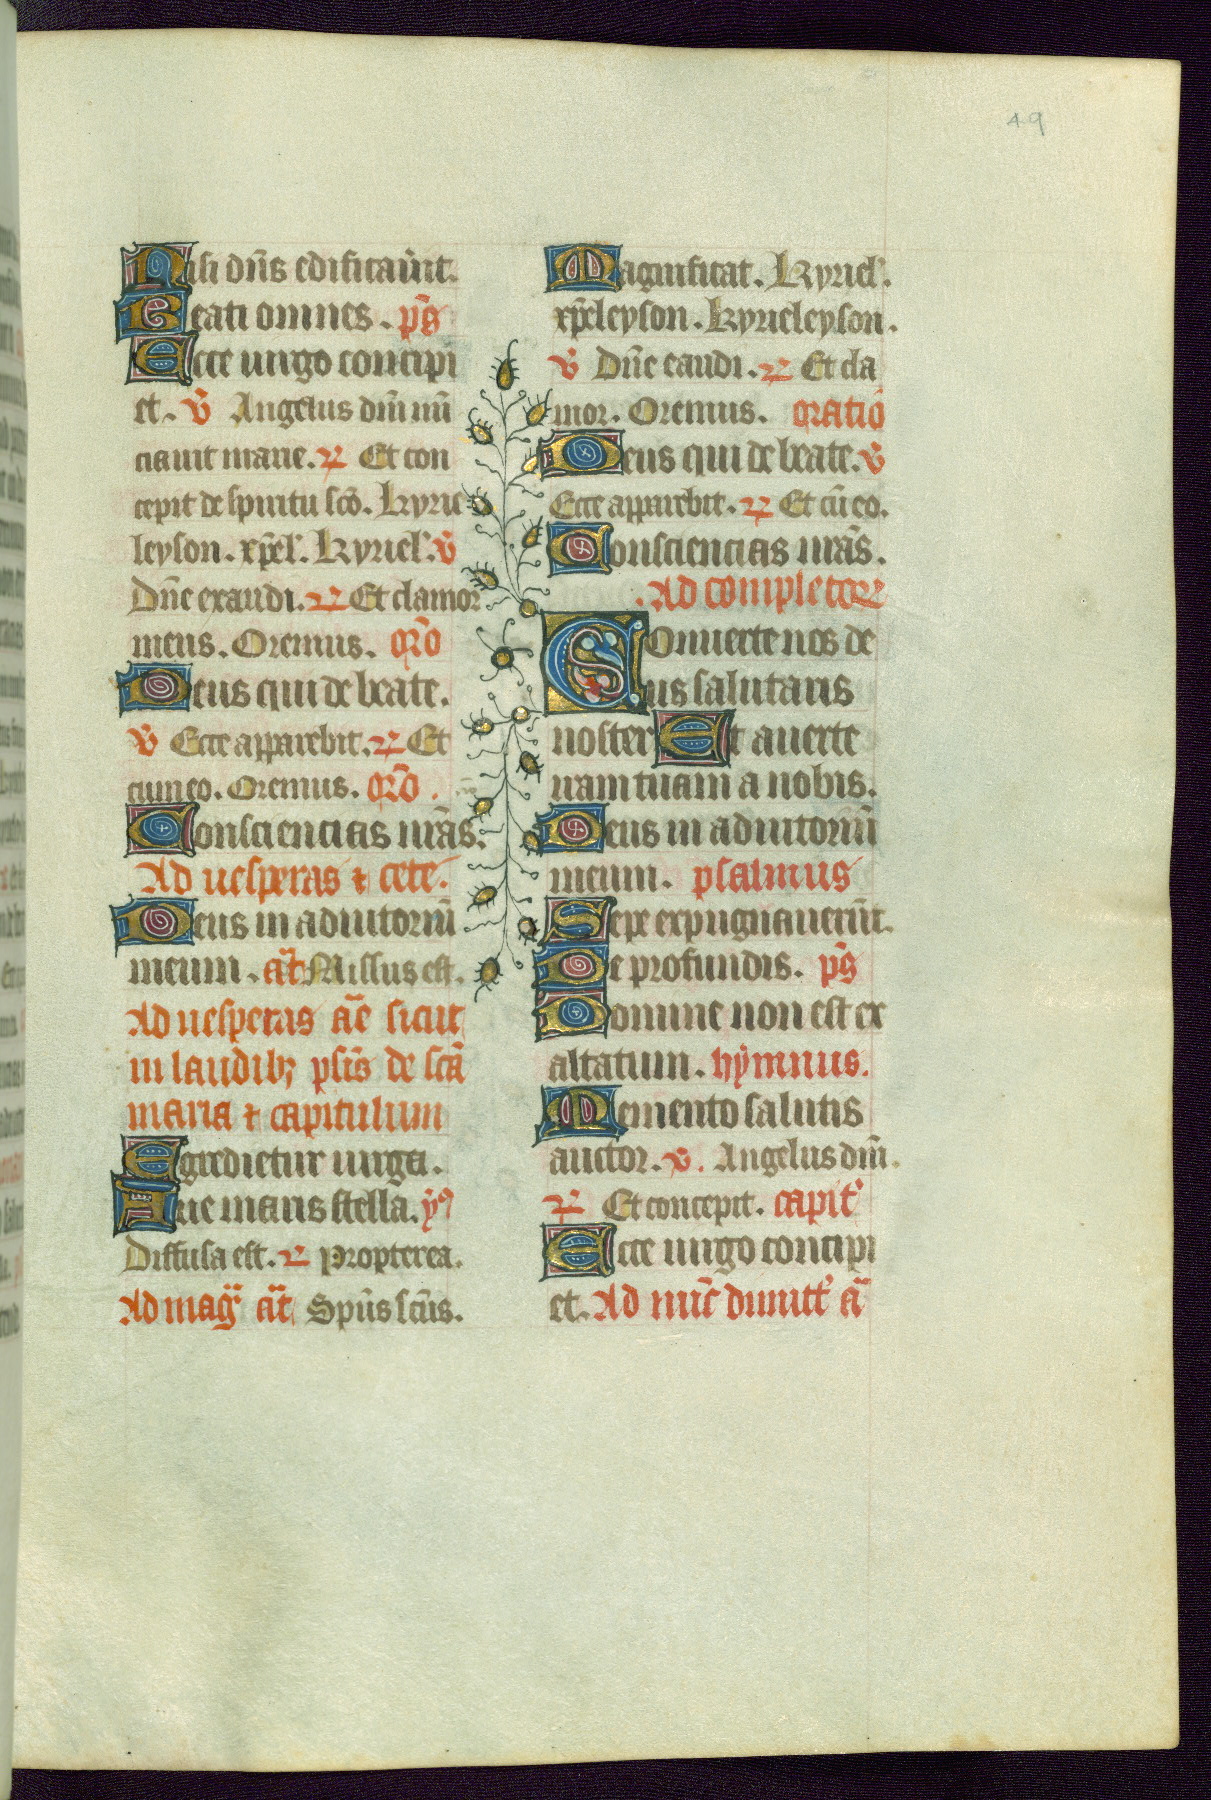 49
Nisi dn̄s edificauīt.
Beati omnes. ps̄
Ecce uirgo concipi
et. v̄ Angelus dn̄i nū
ciauit marie. ꝶ Et con
cepit de spiritu sc̄o. Kyrie
leyson. xp̄el'. Kyriel'. v̄
Dn̄e exaudi. ꝶ Et clamor
meus. Oremus. or̄o
Deus qui de beate.
v̄ Ecce apparebit. ꝶ Et
cum eo. Oremus. or̄o.
Consciencias nr̄as.
Ad uesperas ⁊ cete.
Deus in adiutoriū
meum. an̄t Missus est.
Ad uesperas an̄e sicut
in laudibꝫ psl̄s de scā
maria ⁊ capitulum
Egredietur uirga.
Aue maris stella. ẏꝰ
Diffusa est. ꝶ Propterea.
Ad mag̅r an̄t Spūs scūs.
Magnificat. Kyriel'.
xp̄eleyson. Kyrieleyson.
v̄ Dn̄e eaudi. ꝶ Et cla
mor. Oremus. oratio
Deus qui de beate. v̄
Ecce apparebit. ꝶ Et cū eo.
Consciencias nr̄as.
.Ad completor
Conuerte nos de
us salutaris
noster Et auerte
iram tuam a nobis.
Deus in adiutoriū
meum. psalmus
Sepe expugnauerūt.
De profundis. ps̄
Domine non est ex
altatum. hẏmnus.
Memento salutis
auctor. v. Angelus dn̄i.
ꝶ Et concepit. capit'
Ecce uirgo concipi
et. Ad nūc dimitt' ā